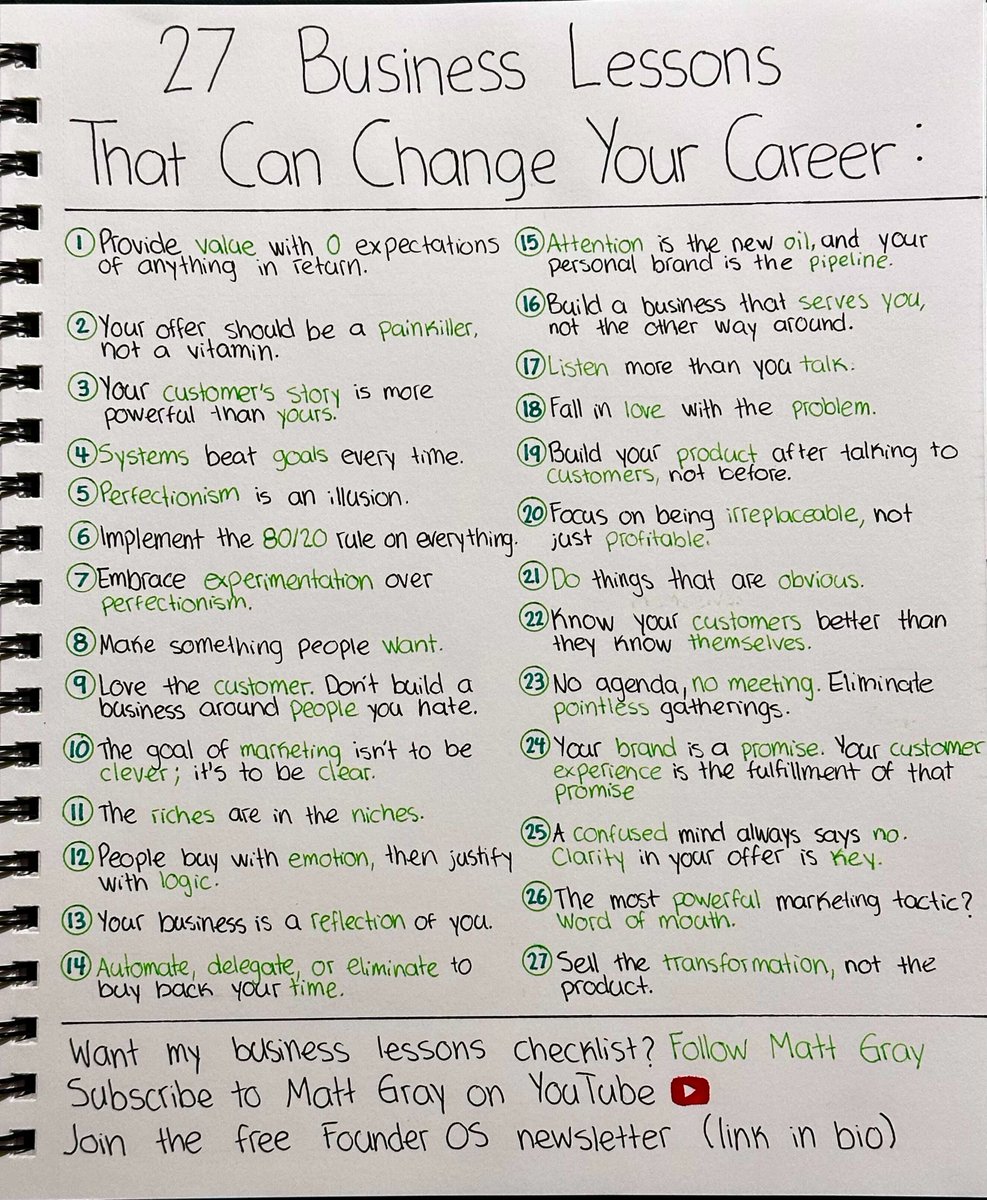 27 Business Lessons
That Can Change Your Career:
1 Provide value with 0 expectations
of anything in return.
2 Your offer should be a painkiller,
not a vitamin.
3 Your customer's story is more
powerful than yours.
4 Systems beat goals every time.
5 Perfectionism is an illusion.
6 Implement the 80/20 rule on everything.
7 Embrace experimentation over
perfectionism.
8 Make something people want.
9 Love the customer. Don't build a
business around people you hate.
10 The goal of marketing isn't to be
clever; it's to be clear.
11 The riches are in the niches.
12 People buy with emotion, then justify
with logic.
13 Your business is a reflection of you.
14 Automate, delegate, or eliminate to
buy back your time.
15 Attention is the new oil, and your
personal brand is the pipeline.
16 Build a business that serves you,
not the other way around.
17 Listen more than you talk.
18 Fall in love with the problem.
19 Build your product after talking to
customers, not before.
20 Focus on being irreplaceable, not
just profitable.
21 Do things that are obvious.
22 Know your customers better than
they know themselves.
23 No agenda, no meeting. Eliminate
pointless gatherings.
24 Your brand is a promise. Your customer
experience is the fulfillment of that
promise
25 A confused mind always says no.
Clarity in your offer is key.
26 The most powerful marketing tactic?
Word of mouth.
27 Sell the transformation, not the
product.
Want my business lessons checklist? Follow Matt Gray
Subscribe to Matt Gray on YouTube
Join the free Founder OS newsletter (link in bio)